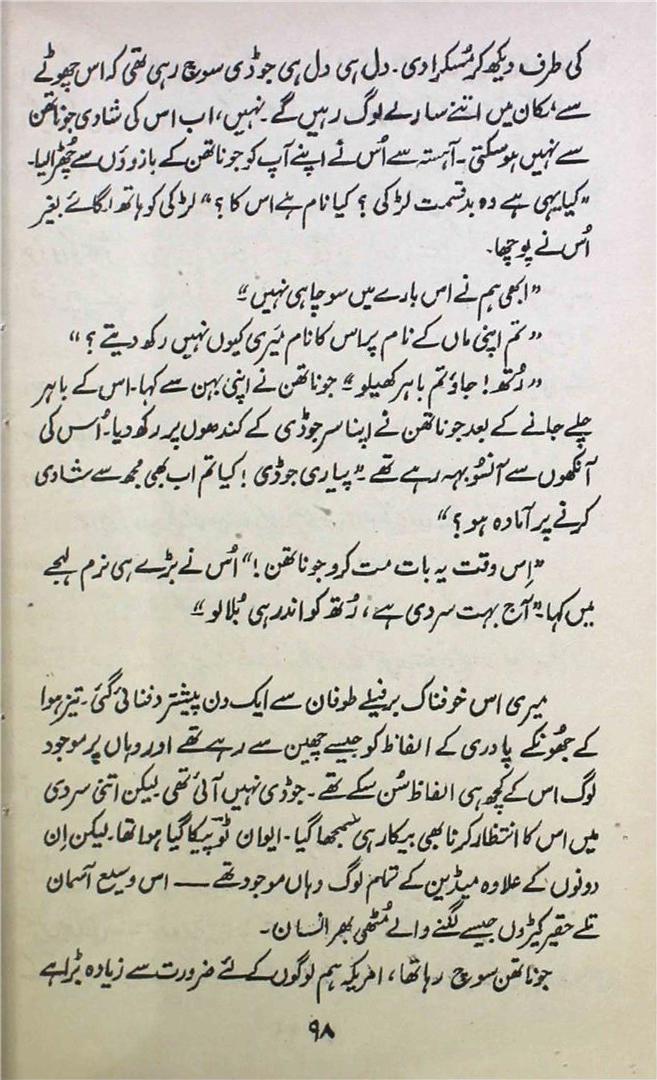 کی طرف دیکھ کر مُسکرا دی۔ دل ہی دل ہی جوڈی سوچ رہی تھی کہ اس چھوٹے
سے مکان میں اتنے سارے لوگ رہیں گے۔ نہیں، اب اس کی شادی جوناتھن
سے نہیں ہو سکتی۔ آہستہ سے اُس نے اپنے آپ کو جوناتھن کے بازوؤں سے چھڑا لیا۔
”کیا یہی ہے وہ بدقسمت لڑکی؟ کیا نام ہے اس کا؟“ لڑکی کو ہاتھ لگائے بغیر
اُس نے پوچھا۔
”ابھی ہم نے اس بارے میں سوچا ہی نہیں“
”تم اپنی ماں کے نام پر اس کا نام میری کیوں نہیں رکھ دیتے؟“
”رُتھ! جاؤ تم باہر کھیلو“ جوناتھن نے اپنی بہن سے کہا۔ اس کے باہر
چلے جانے کے بعد جوناتھن نے اپنا سر جوڈی کے کندھوں پر رکھ دیا۔ اُس کی
آنکھوں سے آنسُو بہہ رہے تھے۔ ”پیاری جوڈی! کیا تم اب بھی مجھ سے شادی
کرنے پر آمادہ ہو؟“
”اِس وقت یہ بات مت کرو جوناتھن!“ اُس نے بڑے ہی نرم لہجے
میں کہا۔ ”آج بہت سردی ہے، رُتھ کو اندر ہی بُلا لو“
میری اس خوفناک برفیلے طوفان سے ایک دن پیشتر دفنائی گئی۔ تیز ہوا
کے جھونکے پادری کے الفاظ کو جیسے چھین سے رہے تھے اور وہاں پر موجود
لوگ اس کے کچھ ہی الفاظ سُن سکے تھے۔ جوڈی نہیں آئی تھی لیکن اتنی سردی
میں اس کا انتظار کرنا بھی بیکار ہی سمجھا گیا۔ ایوان ٹوپیکا گیا ہوا تھا۔ لیکن اِن
دونوں کے علاوہ میڈین کے تمام لوگ وہاں موجود تھے —— اس وسیع آسمان
تلے حقیر کیڑوں جیسے لگنے والے مُٹھی بھر انسان۔
جوناتھن سوچ رہا تھا، امریکہ ہم لوگوں کے لئے ضرورت سے زیادہ بڑا ہے
۹۸